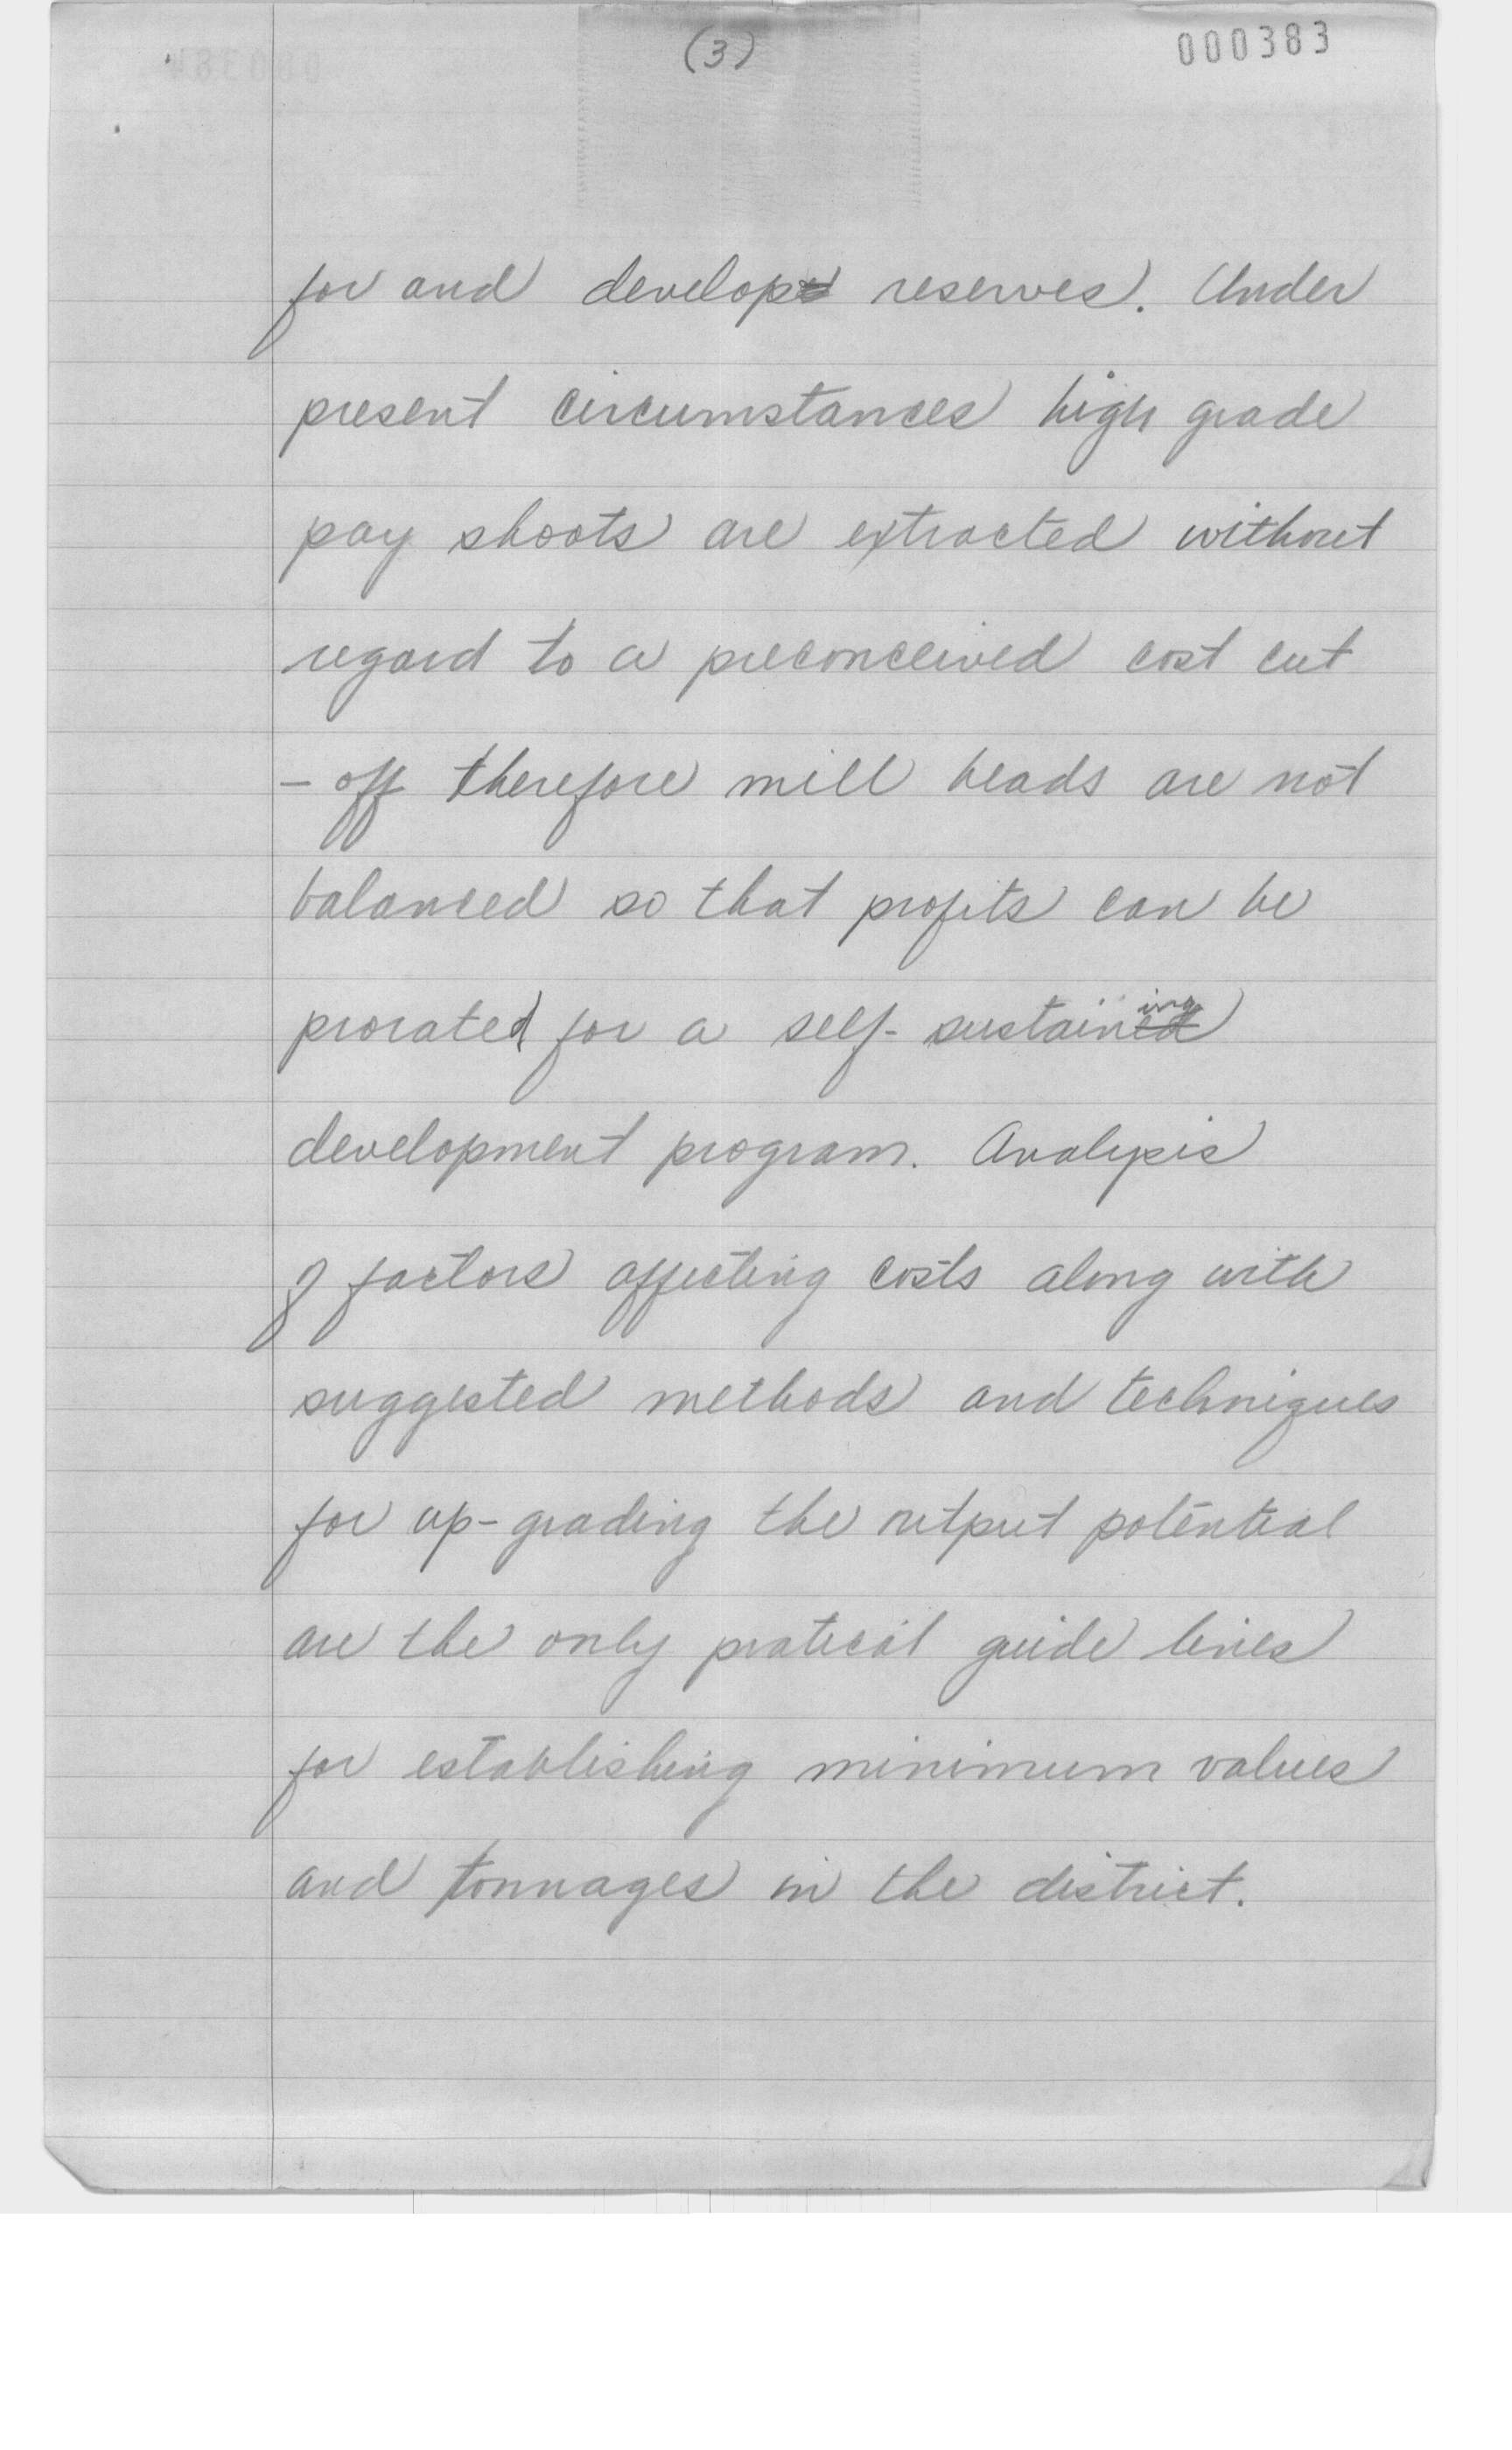 (3)
000383
for and develop reserves. Under
present circumstances high grade
pay shoots are extracted without
regard to a preconceived cost cut
- off therefore mill heads are not
balanced so that profits can be
prorated for a self-sustaining
development program. Analysis
of factors affecting costs along with
suggested methods and techniques
for up-grading the output potential
are the only pratical guide lines
for establishing minimum values
and tonnages in the district.